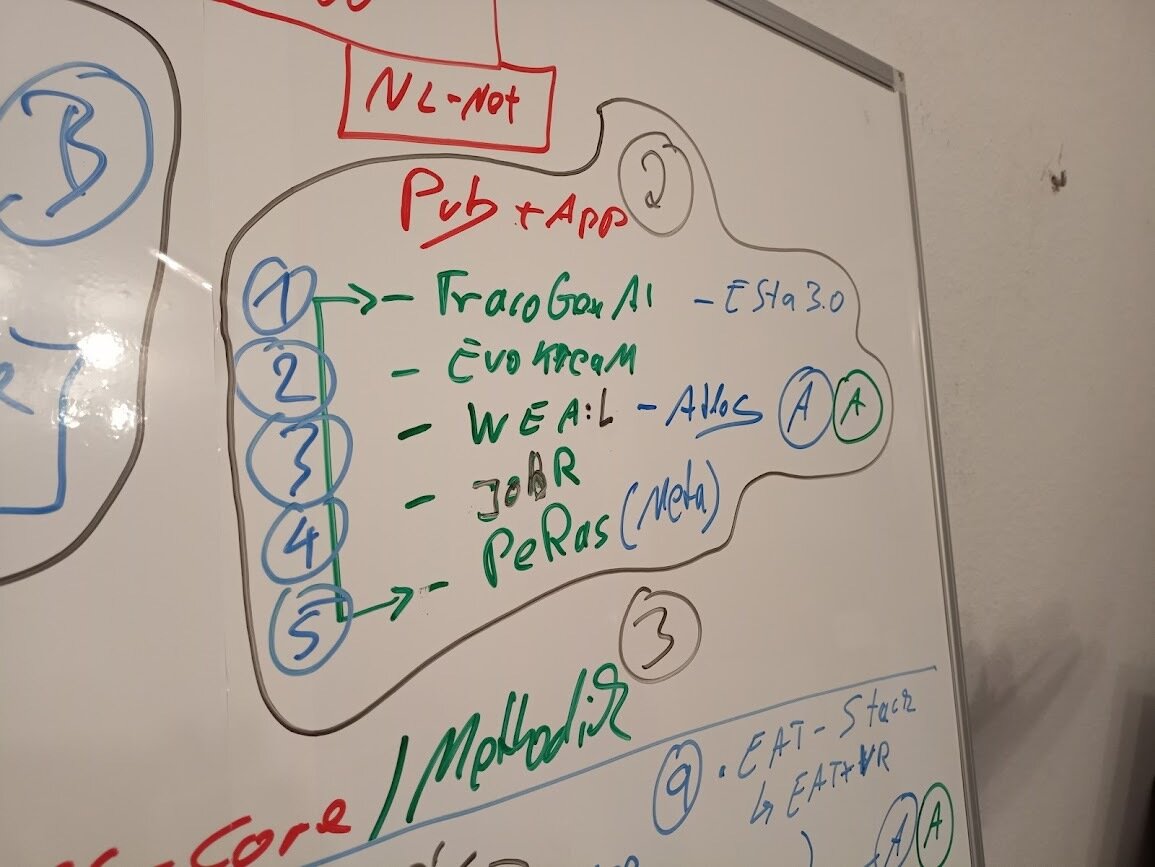 NL-Not
B
2
Pub + App
1 - TracoGenAI - ESta3.0
2 - EvoKreaM
3 - WEA:L - Atlos A A
4 - JobR
5 - PeRas (Meta)
3
Core / Methodik
9 . EAT-Stack
↳ EAT+VR
A A